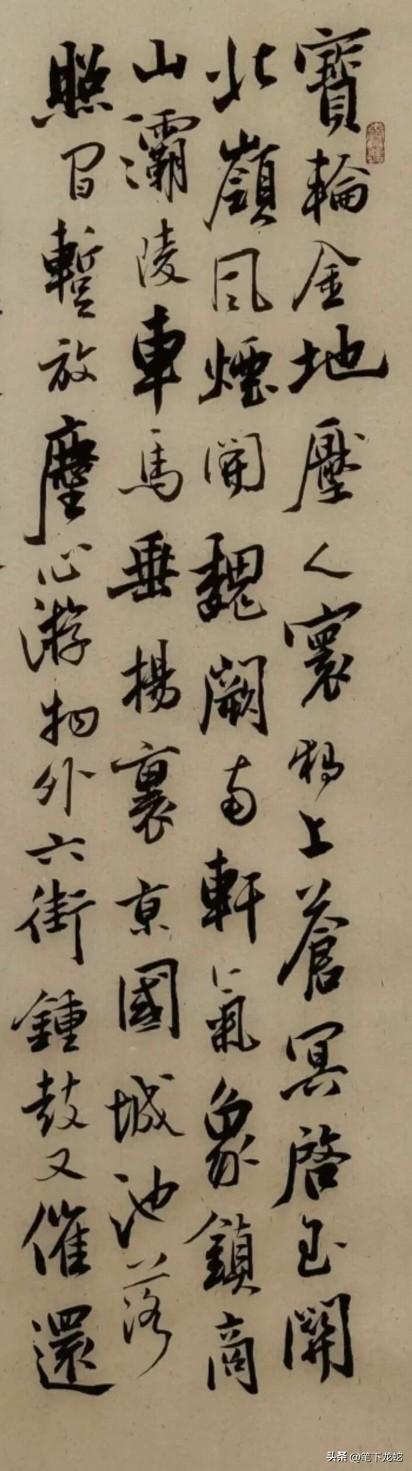 寶輪金地壓人寰獨上蒼冥啓玉關
北嶺風煙開魏闕南軒氣象鎮商
山灞陵車馬垂楊裏京國城池落
照間暫放塵心游物外六街鍾鼓又催還
头条 @笔下龙蛇